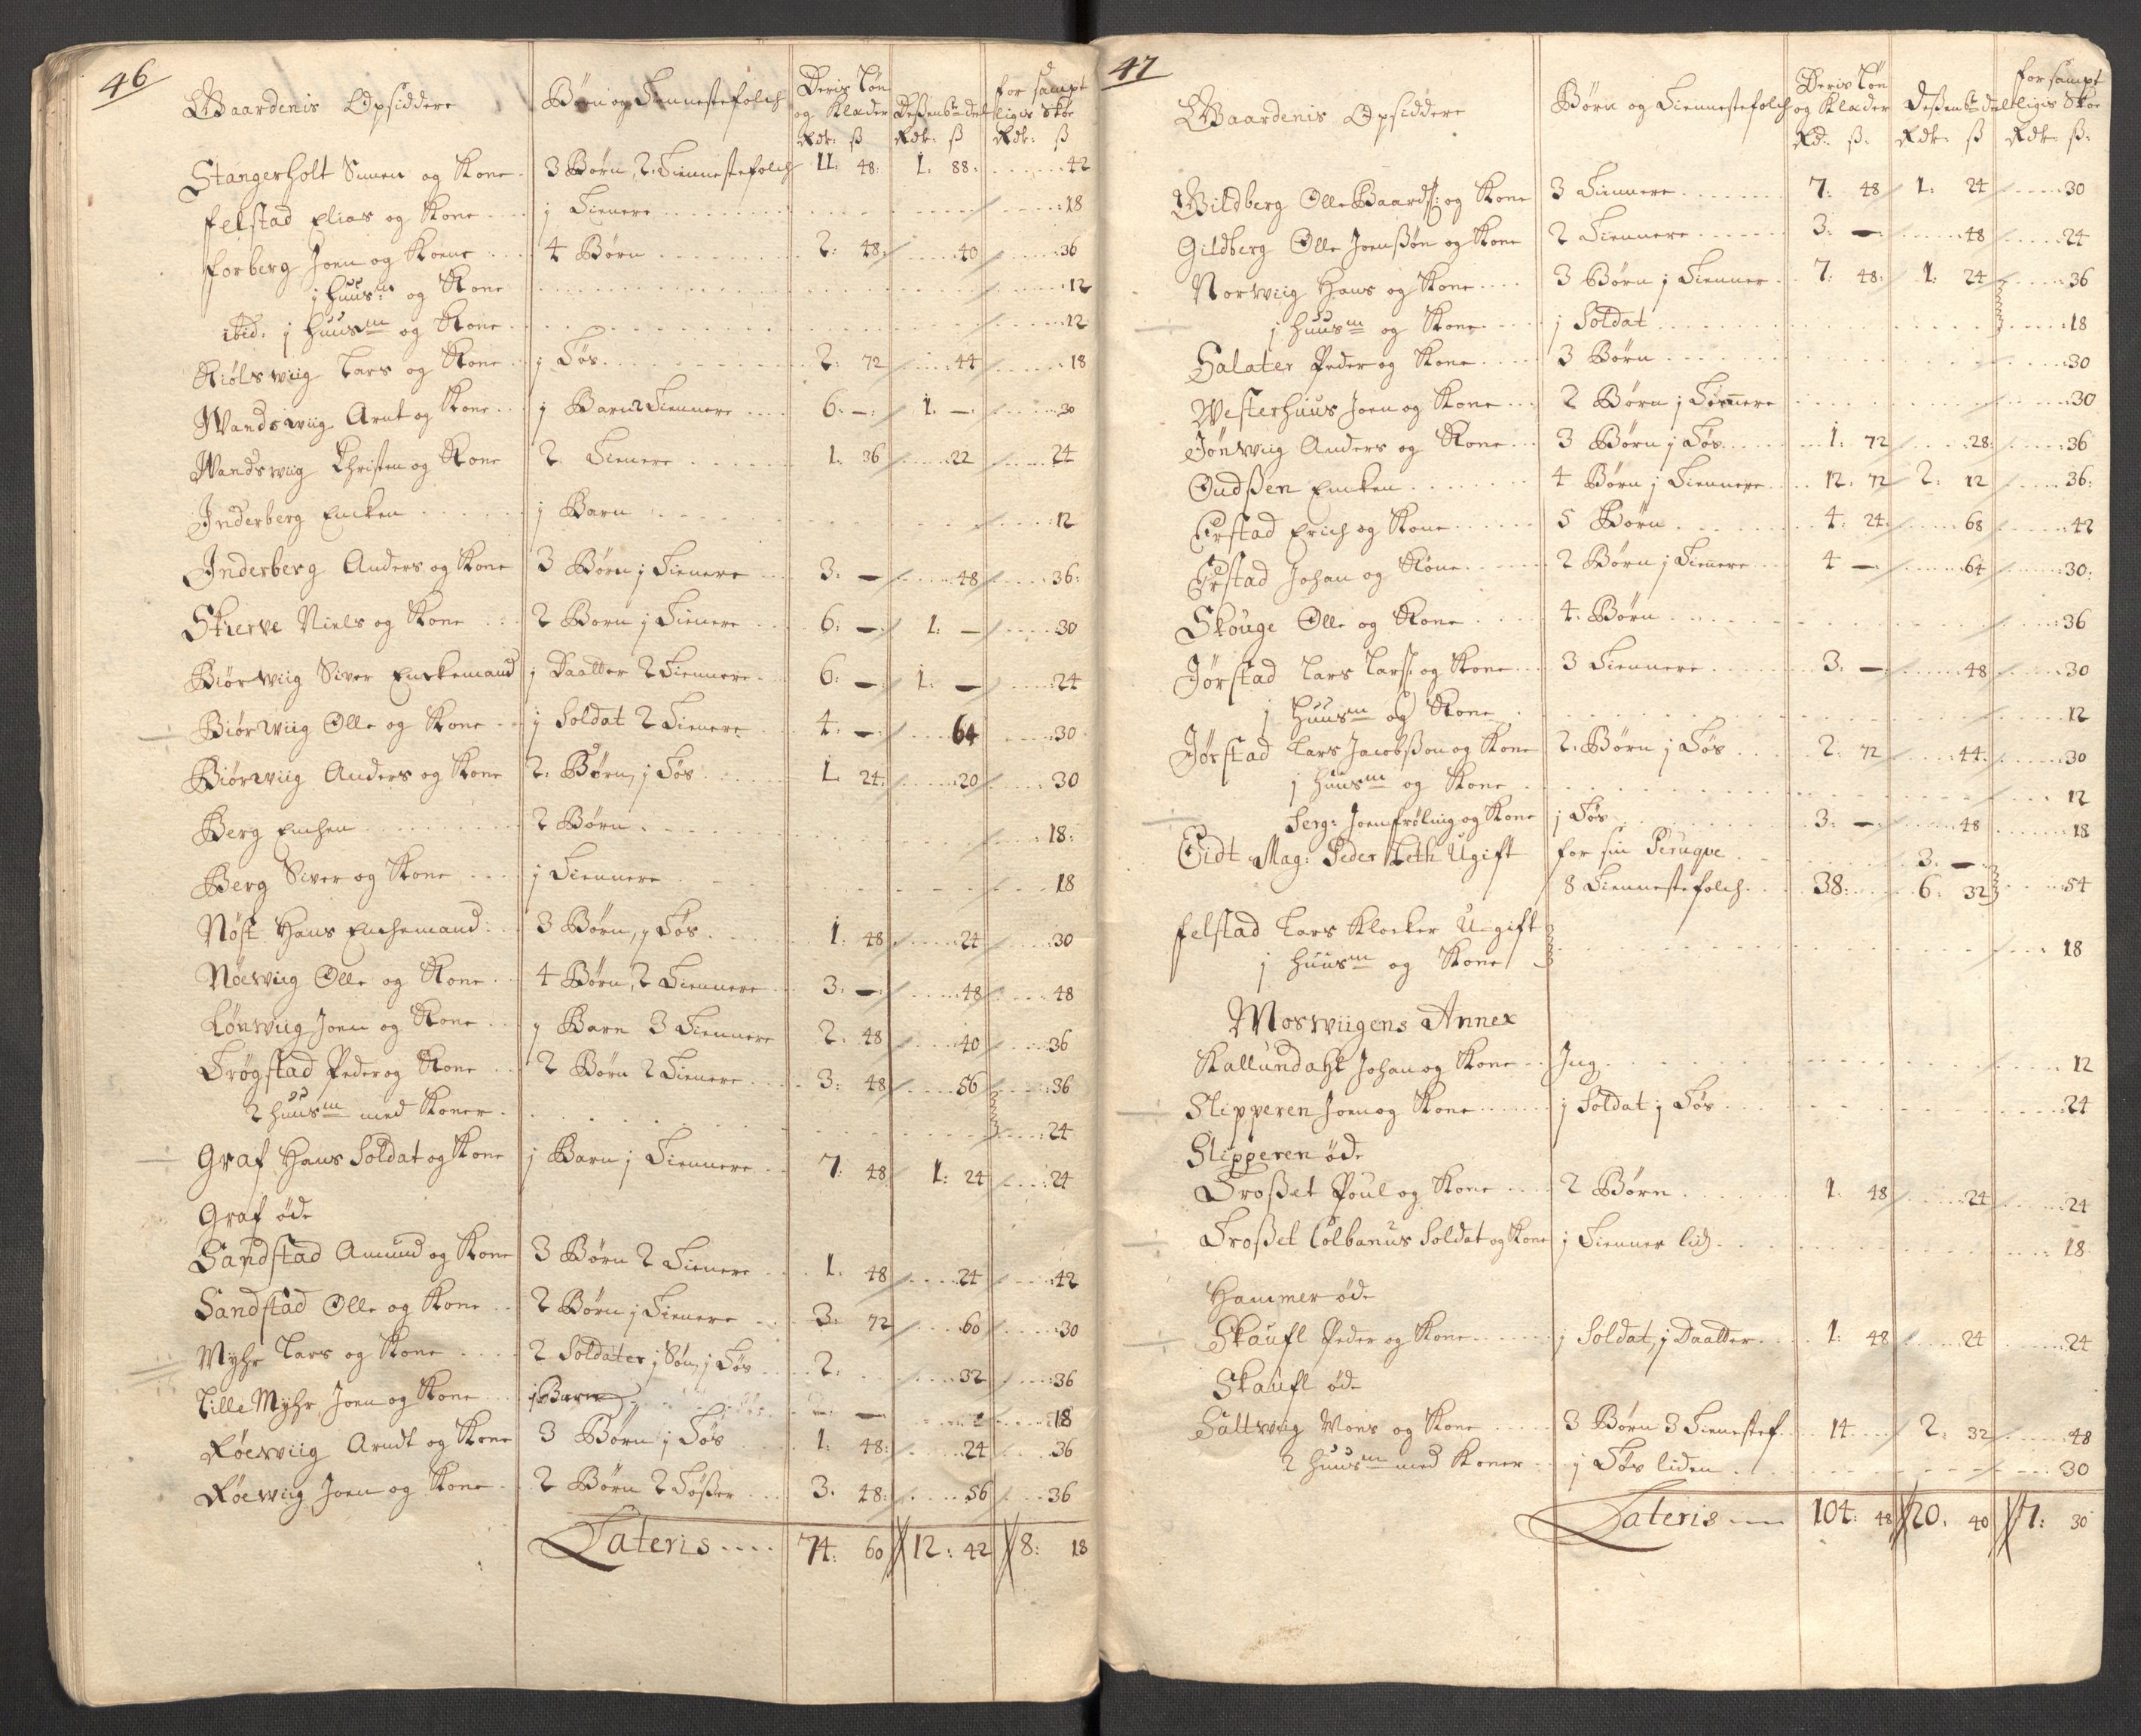 46
Gaardenis Opsiddere | Børn og Tiennestefolch | Deris Løn og Klæder Rdr: ß | Deßen 6te del Rdr: ß | for sampt ligis Skoe Rdr: ß
Stangerholt Simen og Kone | 3 Børn, 2 Tiennestefolch | 11: 48: | 1: 88: | 42
Felstad Elias og Kone | j Tienere | | | 18
Forberg Joen og Koene | 4 Børn | 2: 48: | 40 | 36
j huusm og Kone | | | | 12
ibid: j huusm og Kone | | | | 12
Kiølswiig Lars og Kone | j Tøs | 2: 72 | 44 | 18
Wandswiig Arnt og Kone | j Barn 2 Tiennere | 6: – | 1: – | 30
Wandswiig Christen og Kone | 2 Tienere | 1: 36 | 22 | 24
Inderberg Encken | j Barn | | | 12
Inderberg Anders og Kone | 3 Børn j Tienere | 3: – | 48 | 36:
Skierve Niels og Kone | 2 Børn j Tienere | 6: – | 1: – | 30
Biørwiig Siver Enckemand | j Daatter 2 Tiennere | 6: – | 1: – | 24
Biørwiig Olle og Kone | j Soldat 2 Tienere | 4: – | 64 | 30
Biørwiig Anders og Kone | 2: Børn, j Tøs | 1 24: | 20 | 30
Berg Enchen | 2 Børn | | | 18:
Berg Siver og Kone | j Tiennere | | | 18
Nøst Hans Enchemand | 3 Børn, j Tøs | 1: 48 | 24 | 30
Nøewiig Olle og Kone | 4 Børn, 2 Tiennere | 3: – | 48 | 48
Lønwiig Joen og Kone | j Barn 3 Tiennere | 2: 48 | 40 | 36
Trøgstad Peder og Kone | 2 Børn 2 Tienere | 3: 48 | 56 | 36
2 huusm med Koner | | | | 24
Graf Hans Soldat og Kone | j Barn j Tiennere | 7: 48 | 1: 24 | 24
Graf øde
Sandstad Amund og Kone | 3 Børn 2 Tienere | 1: 48 | 24 | 42
Sandstad Olle og Kone | 2 Børn j Tienere | 3: 72 | 60 | 30
Myhr Lars og Kone | 2 Soldater j Søn, j Tøs | 2: | 32 | 36
Lille Myhr Joen og Kone | j Barn | – – | | 18
Røewiig Arndt og Kone | 3 Børn j Tøs | 1: 48: | 24 | 36
Røewiig Joen og Kone | 2 Børn 2 Tøßer | 3: 48: | 56 | 36
Lateris | 74: 60 | 12: 42 | 8: 18
47
Gaardenis Opsiddere | Børn og Tiennestefolch | Deris Løn og Klæder Rd: ß: | Deßen 6te del Rdr: ß | for sampt ligis Skoe Rdr: ß:
Gildberg Olle Baards: og Kone | 3 Tiennere | 7: 48 | 1: 24 | 30
Gildberg Olle Joenßøn og Kone | 2 Tiennere | 3: – | 48 | 24
Norwiig Hans og Kone | 3 Børn j Tienner | 7: 48: | 1: 24 | 36
j huusm og Kone | j Soldat | | | 18
Salater Peder og Kone | 3 Børn | | | 30
Westerhuus Joen og Kone | 2 Børn j Tienere | | | 30
Jønwiig Anders og Kone | 3 Børn j Tøs | 1: 72 | 28: | 36
Oudßen Encken | 4 Børn j Tiennere | 12: 72 | 2: 12 | 36:
Erstad Erich og Kone | 5 Børn | 4: 24: | 68 | 42
Erstad Johan og Kone | 2 Børn j Tienere | 4 – | 64 | 30:
Skouge Olle og Kone | 4: Børn | | | 36
Jørstad Lars Lars: og Kone | 3 Tiennere | 3: – | 48 | 30
j Huusm og Kone | | | | 12
Jørstad Lars Jacobßon og Kone | 2: Børn j Tøs | 2: 72 | 44: | 30
j huusm og Kone | | | | 12
Serg: Joen Frøling og Kone | j Tøs | 3: – | 48 | 18
Eidt Mag: Peder Leth Ugift | for sin Peruqve | | 3: – |
8 Tiennestefolch | 38: | 6: 32 | 54
Felstad Lars Klocker Ugift
j huusm og Kone | | | | 18
Moswiigens Annex
Kallundahl Johan og Kone | Ing | | | 12
Slipperen Joen og Kone | j Soldat j Tøs | | | 24
Slipperen øde
Troßet Poul og Kone | 2 Børn | 1: 48 | 24 | 24
Troßet Colbanus Soldat og Kone | j Tienner lid | | | 18
Hammer øde
Skaufl Peder og Kone | j Soldat, j Daatter | 1: 48 | 24 | 24
Skaufl øde
Sultwiig Mons og Kone | 3 Børn 3 Tienestef | 14 | 2: 32 | 48
2 huusm med Koner | j Tøs liden | | | 30
Lateris | 104: 48 | 20: 40 | 7: 30